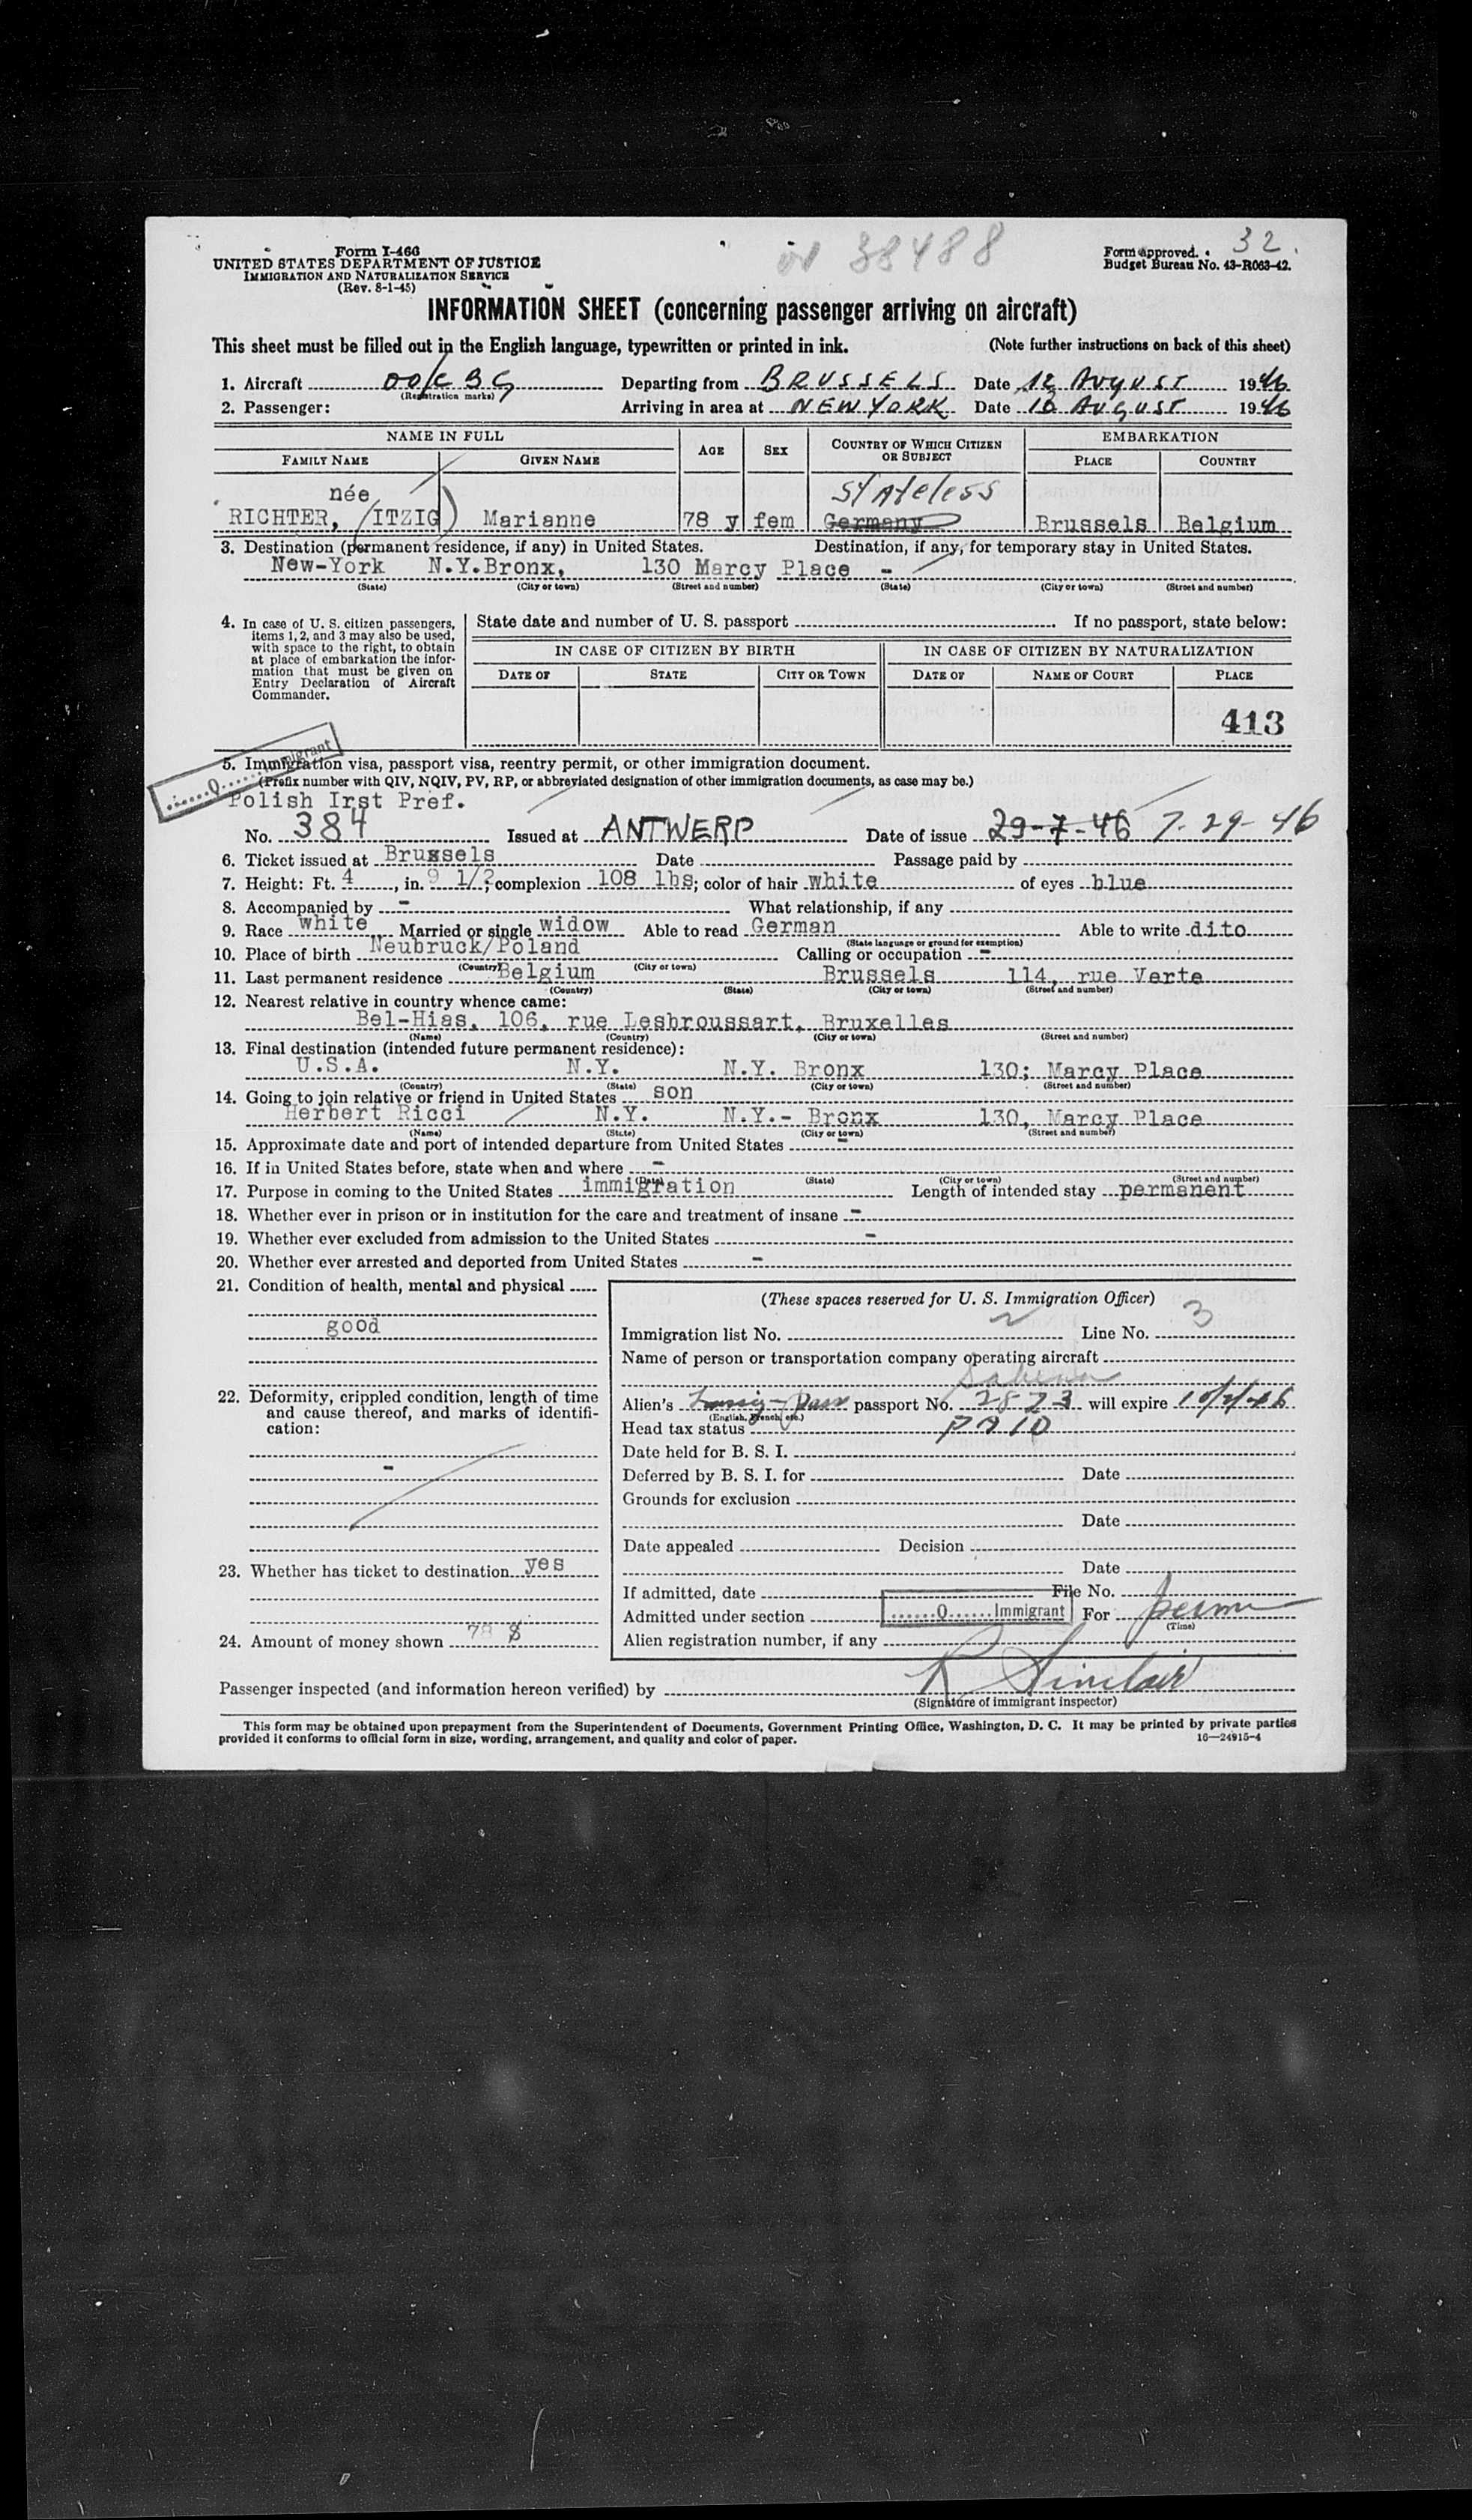 38488
32.
Form I-466
UNITED STATES DEPARTMENT OF JUSTICE
IMMIGRATION AND NATURALIZATION SERVICE
(Rev. 8-1-45)
Form approved.
Budget Bureau No. 43-R063-42.
INFORMATION SHEET (concerning passenger arriving on aircraft)
This sheet must be filled out in the English language, typewritten or printed in ink. (Note further instructions on back of this sheet)
1. Aircraft OO/CBG Departing from BRUSSELS Date 12 AUGUST 1946
(Registration marks)
2. Passenger: Arriving in area at NEW YORK Date 13 AUGUST 1946
NAME IN FULL AGE SEX COUNTRY OF WHICH CITIZEN OR SUBJECT EMBARKATION
FAMILY NAME GIVEN NAME PLACE COUNTRY
née Stateless
RICHTER, (ITZIG) Marianne 78 y fem Germany Brussels Belgium
3. Destination (permanent residence, if any) in United States. Destination, if any, for temporary stay in United States.
New-York N.Y.Bronx, 130 Marcy Place -
(State) (City or town) (Street and number) (State) (City or town) (Street and number)
4. In case of U. S. citizen passengers, items 1, 2, and 3 may also be used, with space to the right, to obtain at place of embarkation the information that must be given on Entry Declaration of Aircraft Commander.
State date and number of U. S. passport If no passport, state below:
IN CASE OF CITIZEN BY BIRTH IN CASE OF CITIZEN BY NATURALIZATION
DATE OF STATE CITY OR TOWN DATE OF NAME OF COURT PLACE
413
0 Immigrant
5. Immigration visa, passport visa, reentry permit, or other immigration document.
(Prefix number with QIV, NQIV, PV, RP, or abbreviated designation of other immigration documents, as case may be.)
Polish Irst Pref.
No. 384 Issued at ANTWERP Date of issue 29-7-46 7-29-46
6. Ticket issued at Brussels Date Passage paid by
7. Height: Ft. 4, in. 9 1/2; complexion 108 lbs; color of hair white of eyes blue
8. Accompanied by - What relationship, if any
9. Race white Married or single widow Able to read German Able to write dito
(State language or ground for exemption)
10. Place of birth Neubruck/Poland Calling or occupation -
(Country) (City or town)
11. Last permanent residence Belgium Brussels 114, rue Verte
(Country) (State) (City or town) (Street and number)
12. Nearest relative in country whence came:
Bel-Hias, 106, rue Lesbroussart, Bruxelles
(Name) (Country) (City or town) (Street and number)
13. Final destination (intended future permanent residence):
U.S.A. N.Y. N.Y. Bronx 130; Marcy Place
(Country) (State) (City or town) (Street and number)
14. Going to join relative or friend in United States son
Herbert Ricci N.Y. N.Y.- Bronx 130, Marcy Place
(Name) (State) (City or town) (Street and number)
15. Approximate date and port of intended departure from United States -
16. If in United States before, state when and where -
(Date) (State) (City or town) (Street and number)
17. Purpose in coming to the United States immigration Length of intended stay permanent
18. Whether ever in prison or in institution for the care and treatment of insane -
19. Whether ever excluded from admission to the United States -
20. Whether ever arrested and deported from United States -
21. Condition of health, mental and physical
good
22. Deformity, crippled condition, length of time and cause thereof, and marks of identification:
-
23. Whether has ticket to destination yes
24. Amount of money shown 78 $
(These spaces reserved for U. S. Immigration Officer)
Immigration list No. 2 Line No. 3
Name of person or transportation company operating aircraft
Sabena
Alien's passport No. 2823 will expire
(English, French, etc.)
Head tax status PAID
Date held for B. S. I.
Deferred by B. S. I. for Date
Grounds for exclusion
Date
Date appealed Decision
Date
If admitted, date File No.
Admitted under section 0 Immigrant For perm
(Time)
Alien registration number, if any
Passenger inspected (and information hereon verified) by R Sinclair
(Signature of immigrant inspector)
This form may be obtained upon prepayment from the Superintendent of Documents, Government Printing Office, Washington, D. C. It may be printed by private parties
provided it conforms to official form in size, wording, arrangement, and quality and color of paper. 16—24915-4